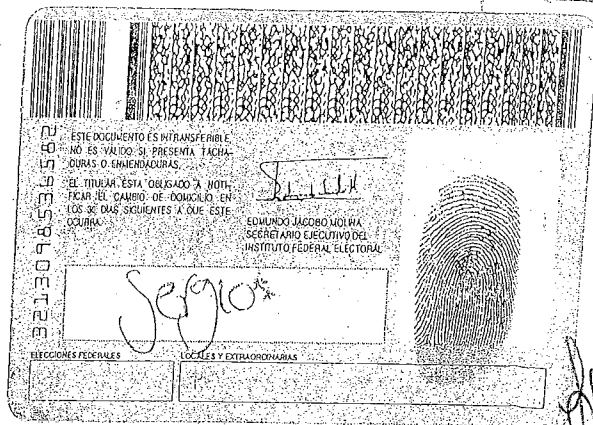 ESTE DOCUMENTO ES INTRANSFERIBLE
NO ES VALIDO SI PRESENTA TACHA-
DURAS O ENMENDADURAS.
EL TITULAR ESTA OBLIGADO A NOTI-
FICAR EL CAMBIO DE DOMICILIO EN
LOS 30 DIAS SIGUIENTES A QUE ESTE
OCURRA.
EDMUNDO JACOBO MOLINA
SECRETARIO EJECUTIVO DEL
INSTITUTO FEDERAL ELECTORAL
Sergio
ELECCIONES FEDERALES
LOCALES Y EXTRAORDINARIAS